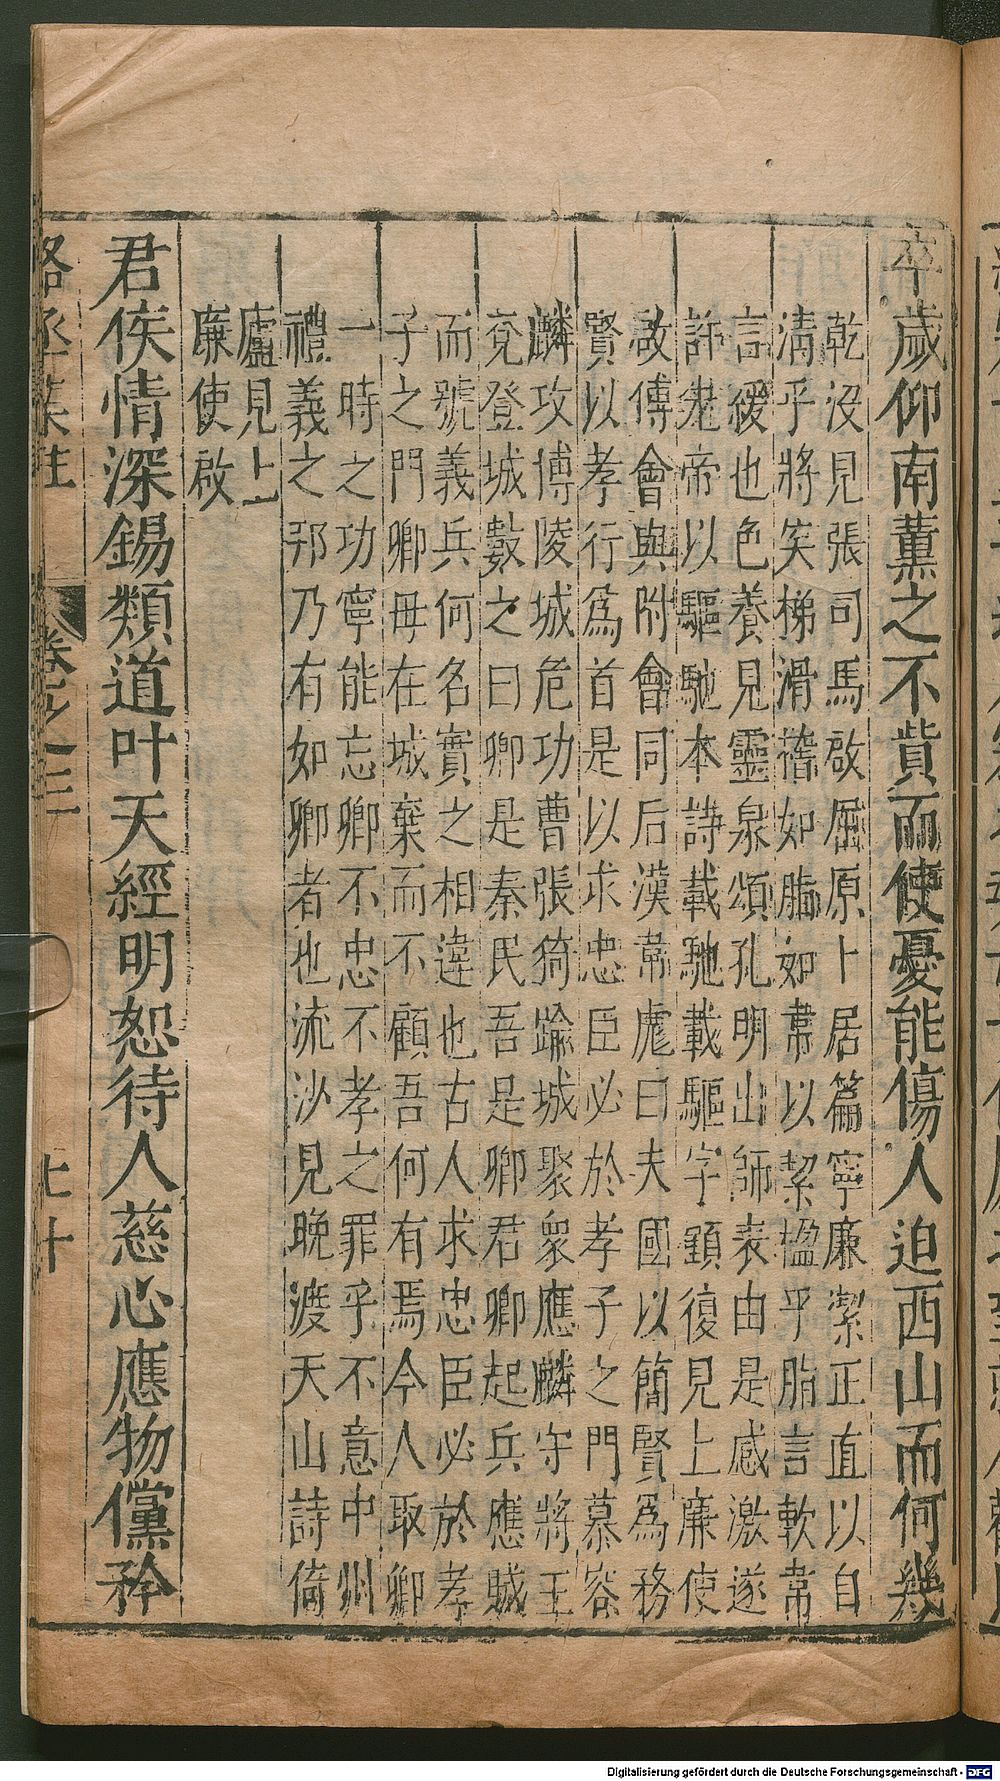 卒歲仰南薫之不貲而使憂能傷人迫西山而何幾
乾没見張司馬啟屈原卜居篇寧廉潔正直以自
清乎將突梯滑稽如脂如韋以絜楹乎脂言軟韋
言緩也色養見靈泉頌孔明出師表由是感激遂
許先帝以驅馳本詩載馳載驅字顕復見上廉使
啟傅會與附會同后漢韋彪曰夫國以簡賢為務
賢以孝行爲首是以求忠臣必於孝子之門慕容
麟攻博陵城危功曹張猗踰城聚衆應麟守將王
兗登城數之曰卿是秦民吾是卿君卿起兵應賊
而號義兵何名實之相違也古人求忠臣必於孝
子之門卿母在城棄而不顧吾何有焉今人取卿
一時之功寧能忘卿不忠不孝之罪乎不意中州
禮義之邦乃有如卿者也流沙見晚渡天山詩倚
廬見上
廉使啟
君侯情深錫類道叶天經明恕待人慈心應物儻矜
駱丞集註
卷之三
七十
Digitalisierung gefördert durch die Deutsche Forschungsgemeinschaft - DFG